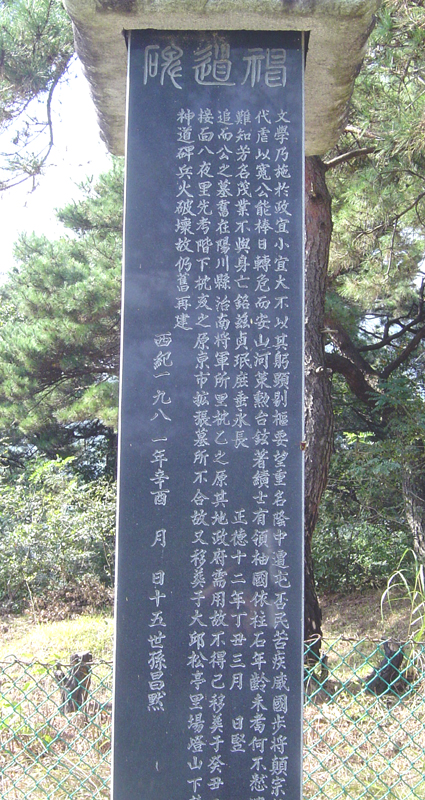 碑道神
文學乃施於政宜小宜大不以其躬顯剔樞要望重名陰中遭屯否民苦疾威國步將顛宗
代虐以寬公能捧日轉危而安山河束勲台鉉著績士有領袖國依柱石年齡未耆何不慭
難知芳名茂業不與身亡銘玆貞珉庶垂永長 正德十二年丁丑三月 日竪
追而公之墓舊在陽川縣治南將軍所里杭乙之原其地政府需用故不得已移葬于癸丑
接面八夜里先考階下枕亥之原京市擴張墓所不合故又移葬于大邱松亭里場燈山下
神道碑兵火破壞故仍舊再建
西紀一九八一年辛酉 月 日十五世孫昌熙